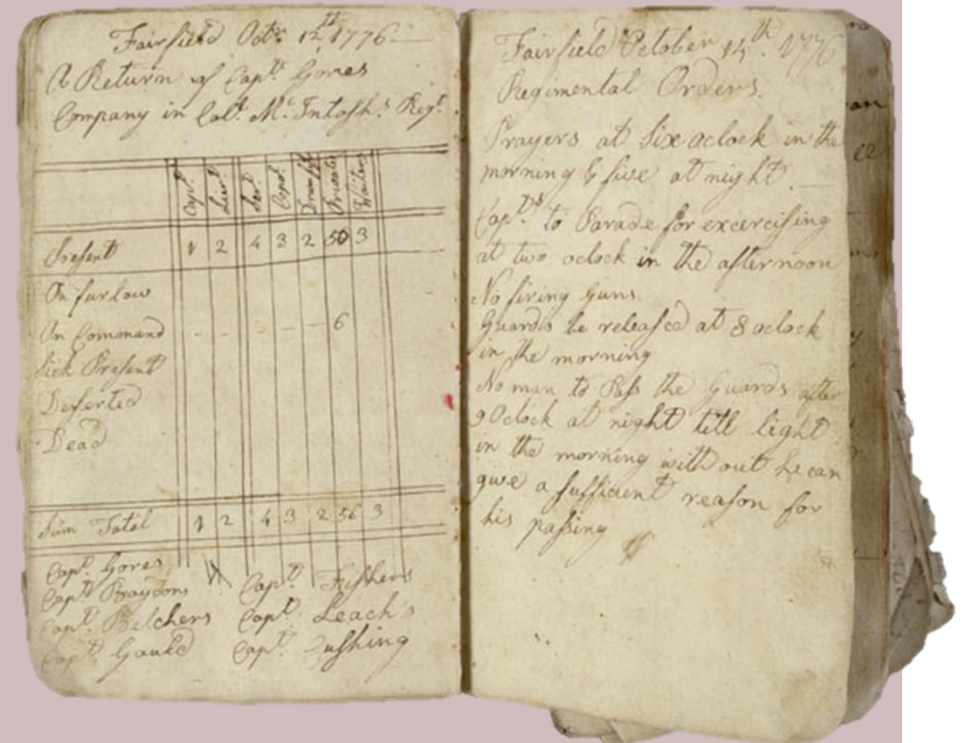 Fairfield Octr. 12th 1776
A Return of Capt. Gores
Company in Coll. Mc Intosh's Regt.
Capt. Lieut. Ser. Corp. Drum Privates
Present 1 2 4 3 2 50 3
On furlow
On Command 6
Sick Present
Deserted
Dead
Sum Total 1 2 4 3 2 56 3
Capt. Gores
Capt. Capt. Fishers
Capt. Belchers Capt. Leach's
Capt. Gauld Capt.
Fairfield October 14th. 1776
Regimental Orders.
Prayers at Six aclock in the
morning & five at night.
Capts. to Parade for excercising
at two oclock in the afternoon
No firing Guns
Guards be released at 8 oclock
in the morning
No man to Pass the Guards after
9 Oclock at night till light
in the morning without he can
give a sufficient reason for
his passing
an